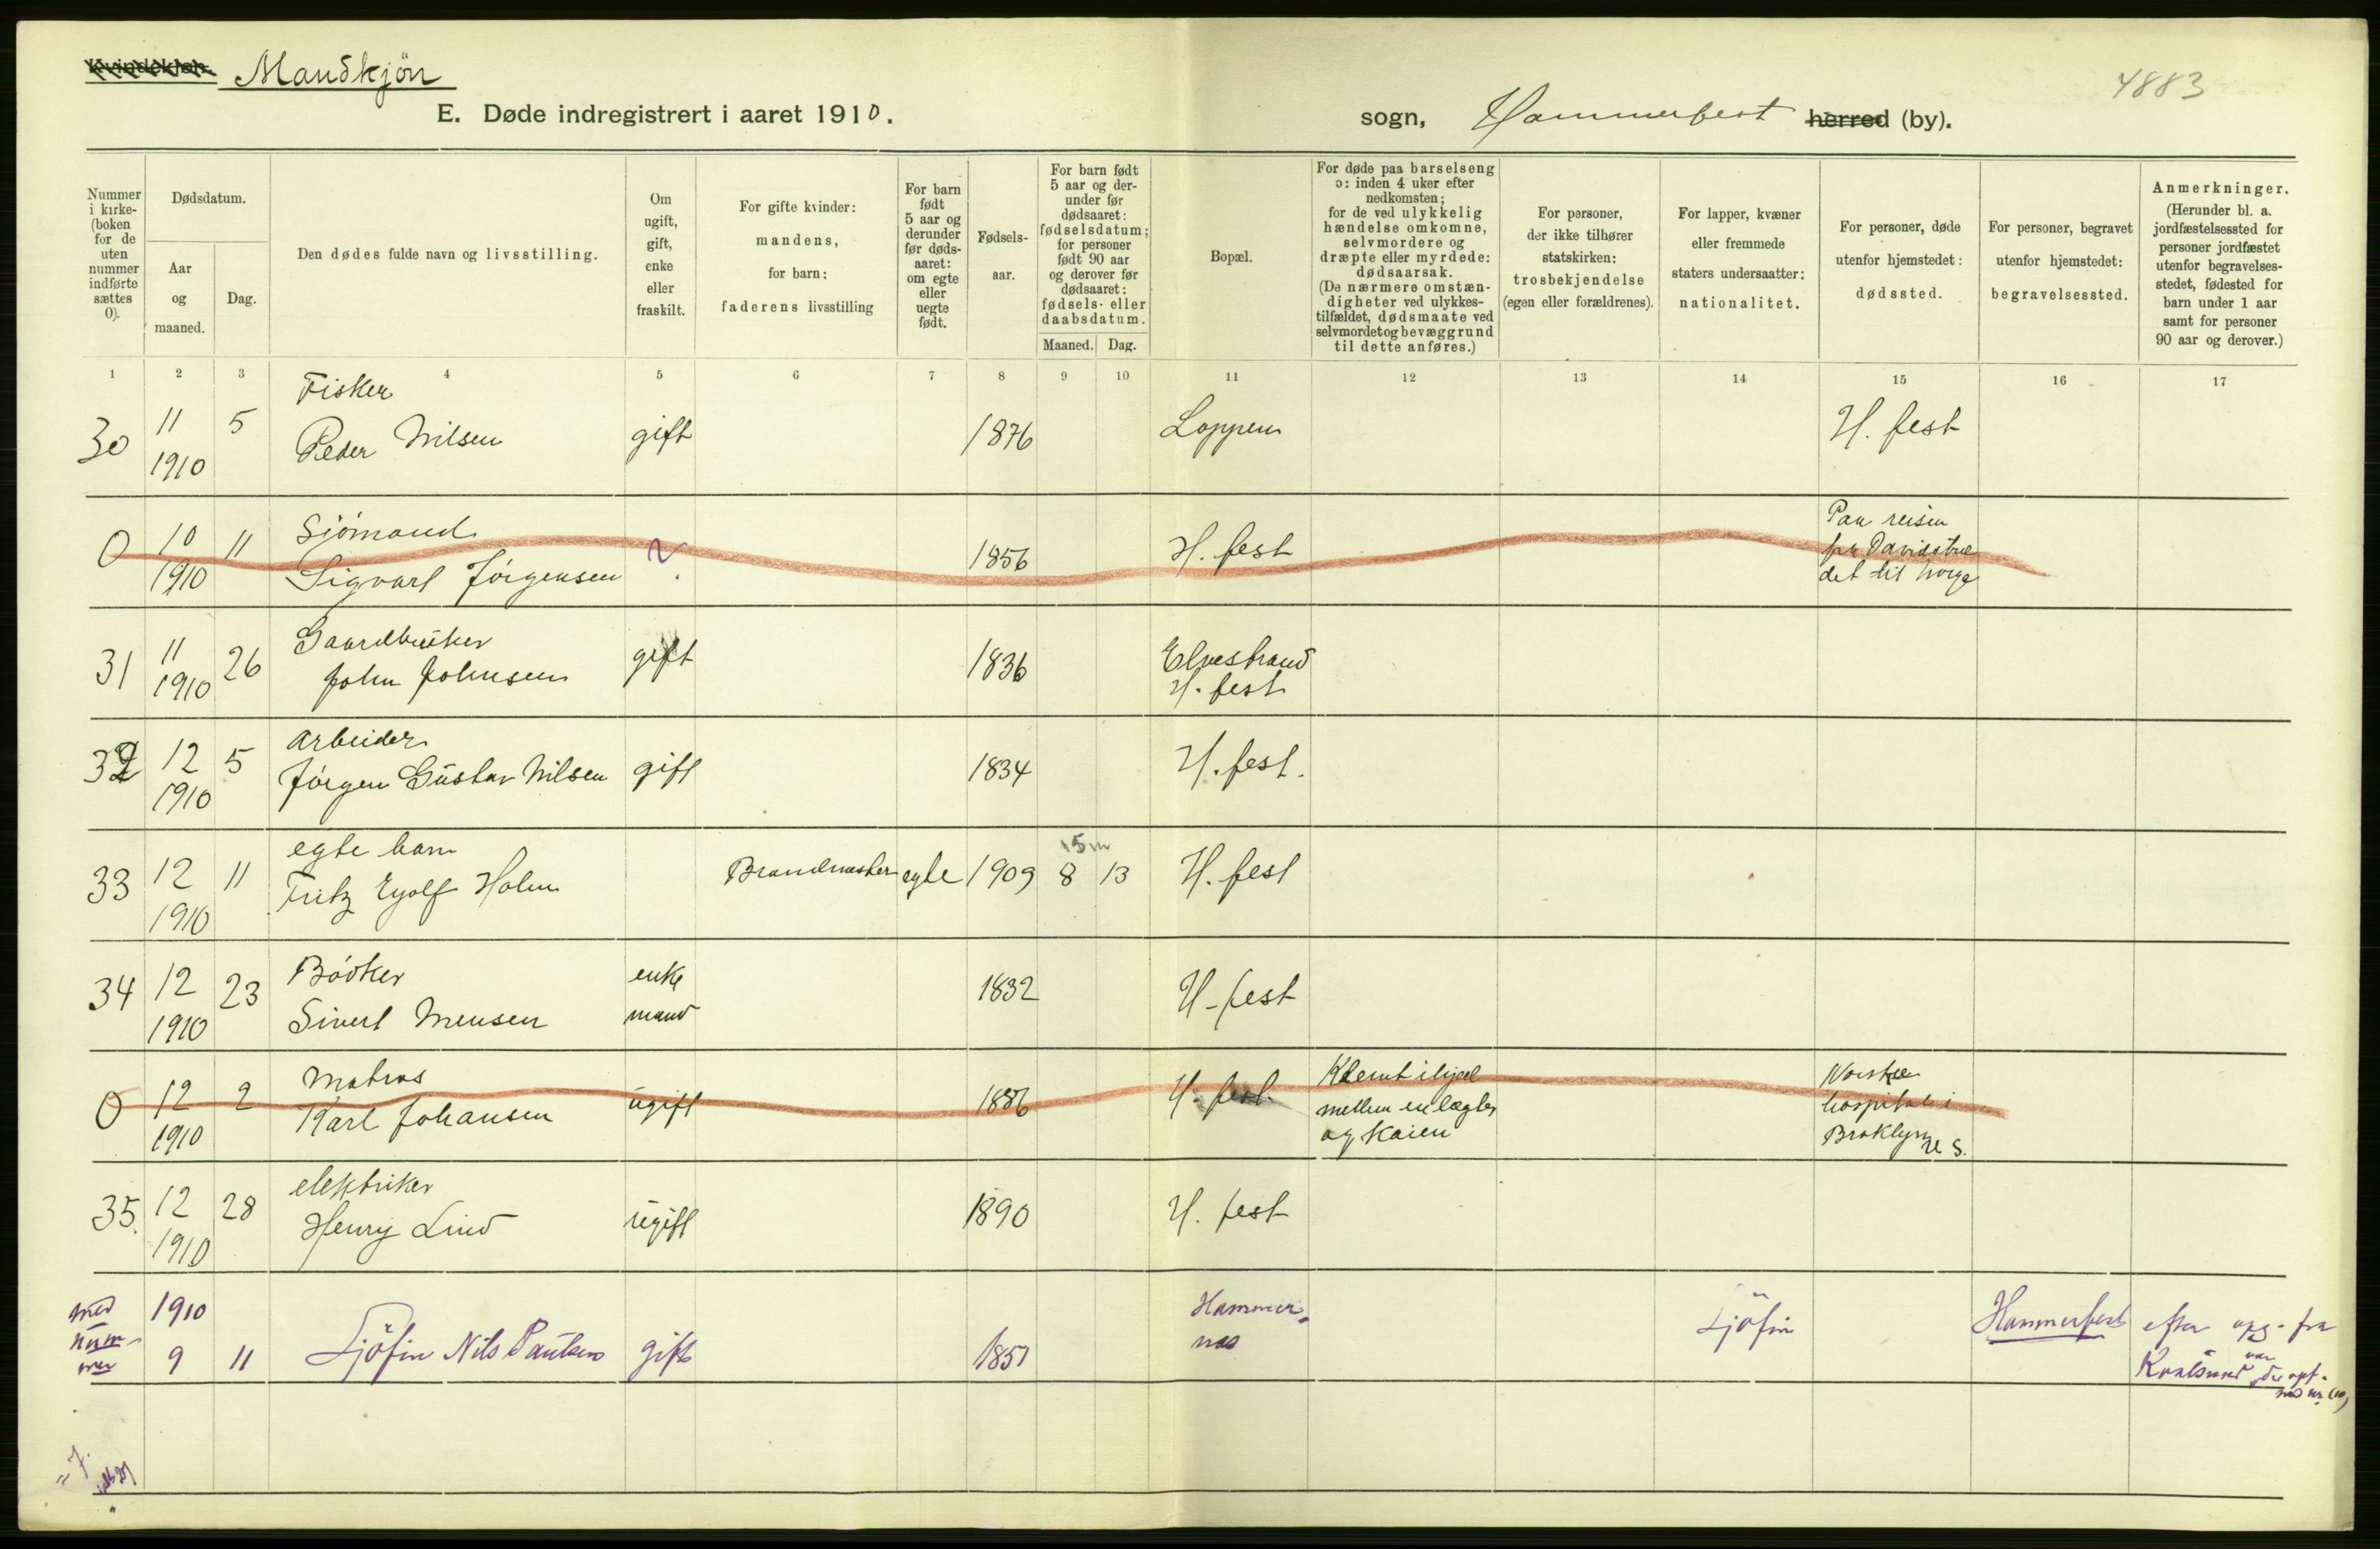 Kvindekjøn. Mandkjön
4883
E. Døde indregistrert i aaret 1910.
sogn, Hammerfest herred (by).
Nummer i kirke-(boken for de uten nummer indførte sættes 0).
Dødsdatum.
Aar og maaned.
Dag.
Den dødes fulde navn og livsstilling.
Om ugift, gift, enke eller fraskilt.
For gifte kvinder: mandens, for barn: faderens livsstilling
For barn født 5 aar og derunder før døds-aaret: om egte eller uegte født.
Fødsels-aar.
For barn født 5 aar og der-under før dødsaaret: fødselsdatum; for personer født 90 aar og derover før dødsaaret: fødsels- eller daabsdatum.
Maaned. Dag.
Bopæl.
For døde paa barselseng ɔ: inden 4 uker efter nedkomsten; for de ved ulykkelig hændelse omkomne, selvmordere og dræpte eller myrdede: dødsaarsak. (De nærmere omstæn-digheter ved ulykkes-tilfældet, dødsmaate ved selvmordet og bevæggrund til dette anføres.)
For personer, der ikke tilhører statskirken: trosbekjendelse (egen eller forældrenes).
For lapper, kvæner eller fremmede staters undersaatter: nationalitet.
For personer, døde utenfor hjemstedet: dødssted.
For personer, begravet utenfor hjemstedet: begravelsessted.
Anmerkninger. (Herunder bl. a. jordfæstelsessted for personer jordfæstet utenfor begravelses-stedet, fødested for barn under 1 aar samt for personer 90 aar og derover.)
1 2 3 4 5 6 7 8 9 10 11 12 13 14 15 16 17
30 11 1910 5 Fisker
Peder Nilsen gift 1876 Loppen H. fest
0 10 1910 11 Sjömand
Sigvart Jörgensen ? 1856 H. fest Paa reisen
fra Davidstræ
det til Norge
31 11 1910 26 Gaardbruker
John Johnsen gift 1836 Elvestrand
H. fest
32 12 1910 5 Arbeider
Jörgen Gustav Nilsen gift 1834 H. fest.
33 12 1910 11 egte barn
Fritz Eyolf Holm Brandmester egte 1909 8 13 H. fest
15 m
34 12 1910 23 Bödker
Sivert Monsen enke
mand 1832 H-fest
0 12 1910 2 Matros
Karl Johansen ugift 1886 H. fest. Klemt ihjel
mellem en lægter
og Kaien Norske
hospital i
Broklyn
U S.
35. 12 1910 28 elektriker
Henry Lind ugift 1890 H. fest
med
num-
mer 1910
9 11 Sjöfin Nils Paulsen gift 1851 Hammer-
nes Sjöfin Hammerfest efter opg. fra
Kvalsund var der opf.
med nr. (10)